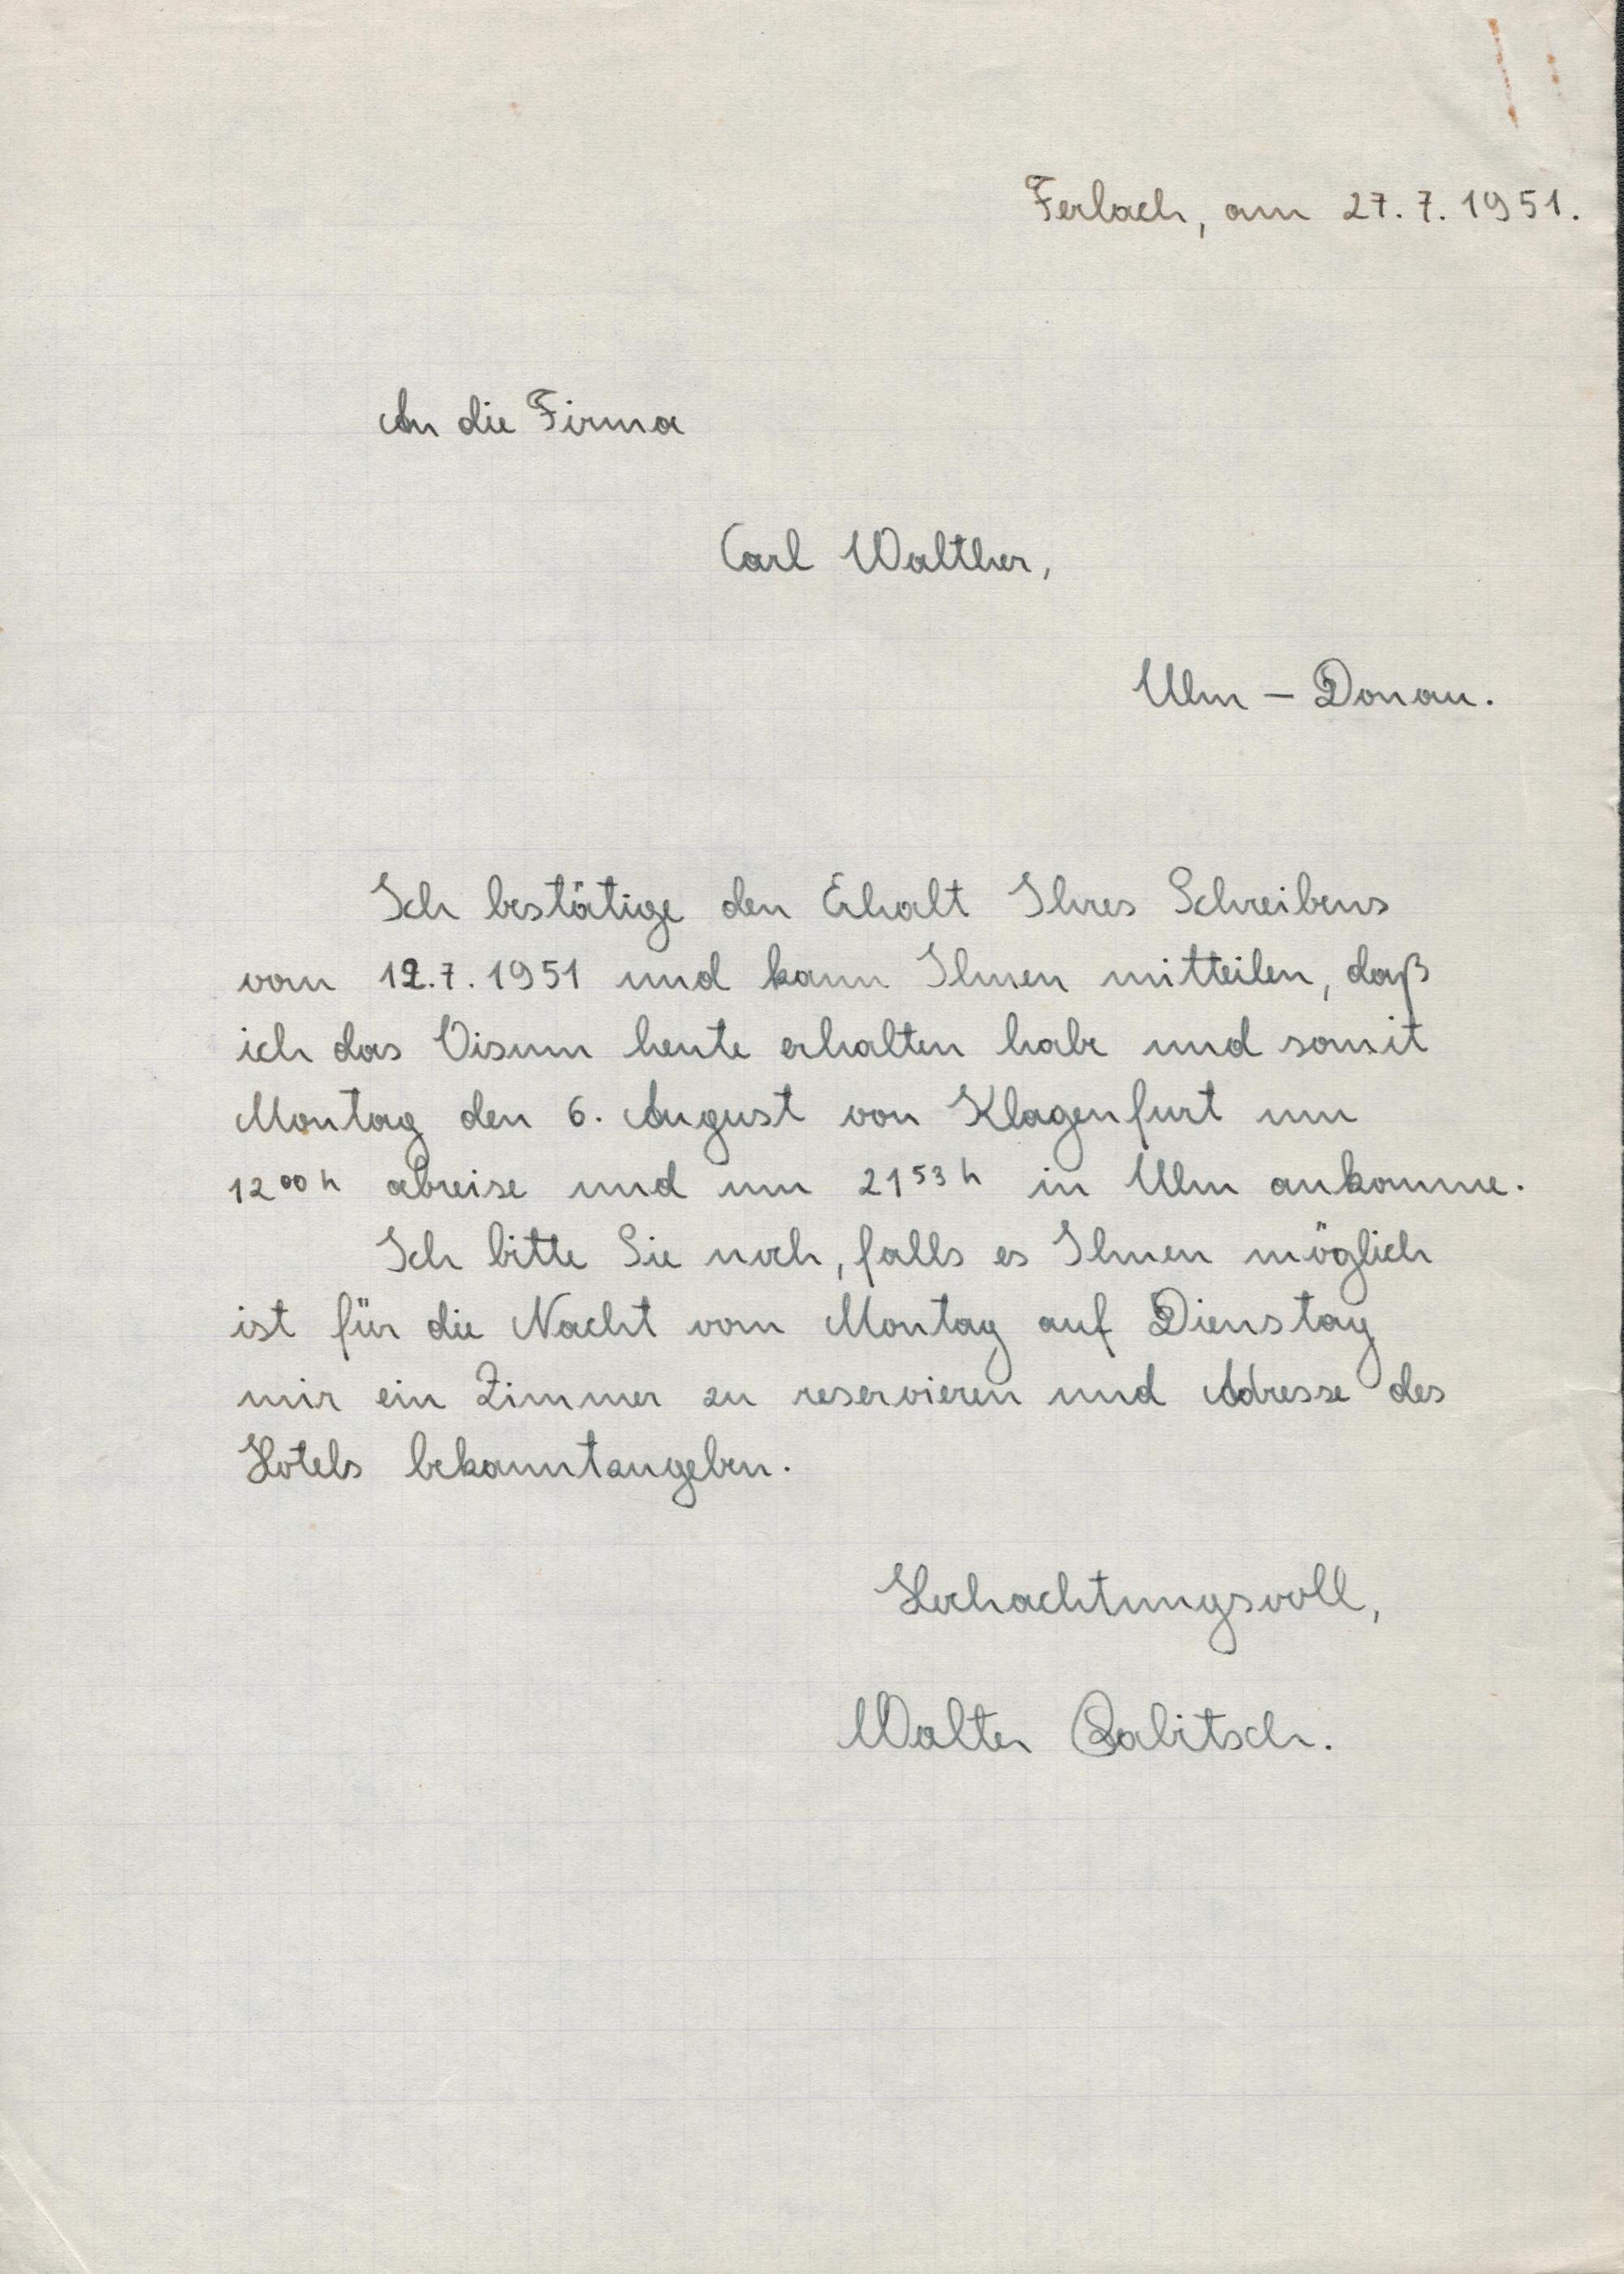 Ferlach, am 27.7.1951.
An die Firma
Carl Walther,
Ulm – Donau.
Ich bestätige den Erhalt Ihres Schreibens
vom 12.7.1951 und kann Ihnen mitteilen, daß
ich das Visum heute erhalten habe und somit
Montag den 6. August von Klagenfurt um
12⁰⁰ʰ abreise und um 21⁵³ʰ in Ulm ankomme.
Ich bitte Sie noch, falls es Ihnen möglich
ist für die Nacht vom Montag auf Dienstag
mir ein Zimmer zu reservieren und Adresse des
Hotels bekanntzugeben.
Hochachtungsvoll,
Walter Babitsch.